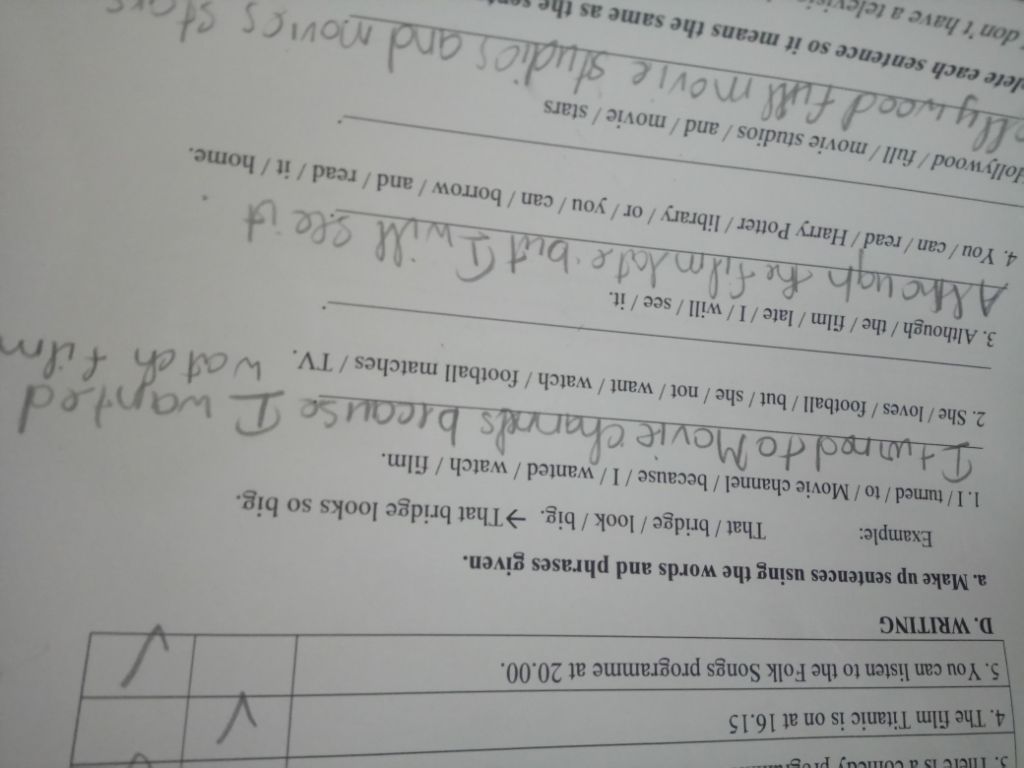 3. There is a comedy
4. The film Titanic is on at 16.15
5. You can listen to the Folk Songs programme at 20.00.
D. WRITING
a. Make up sentences using the words and phrases given.
Example: That / bridge / look / big. → That bridge looks so big.
1. I / turned / to / Movie channel / because / I / wanted / watch / film.
I turned to Movie channels because I wanted
watch film
2. She / loves / football / but / she / not / want / watch / football matches / TV.
3. Although / the / film / late / I / will / see / it.
Although the film late but I will see it
4. You / can / read / Harry Potter / library / or / you / can / borrow / and / read / it / home.
Hollywood / full / movie studios / and / movie / stars
ollywood full movie studios and movies stars
lete each sentence so it means the same as the
don't have a